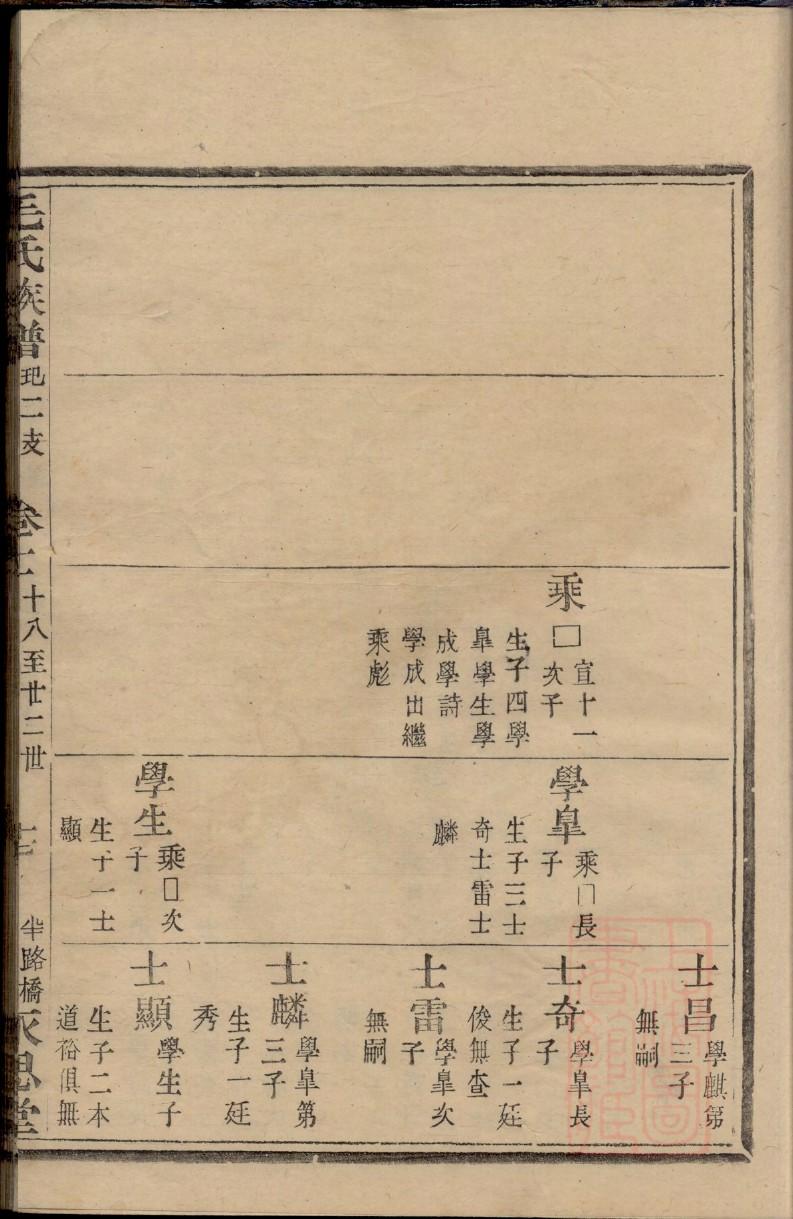 乘□
宣十一
次子
生子四學
臯學生學
成學詩
學成出繼
乘彪
學臯
乘□長
子
生子三士
奇士雷士
麟
學生
乘□次
子
生子一士
顯
士昌
學麒第
三子
無嗣
士奇
學臯長
子
生子一廷
俊無查
士雷
學臯次
子
無嗣
士麟
學臯第
三子
生子一廷
秀
士顯
學生子
生子二本
道裕俱無
毛氏族譜
玘二支
卷二
十八至廿二世
半路橋